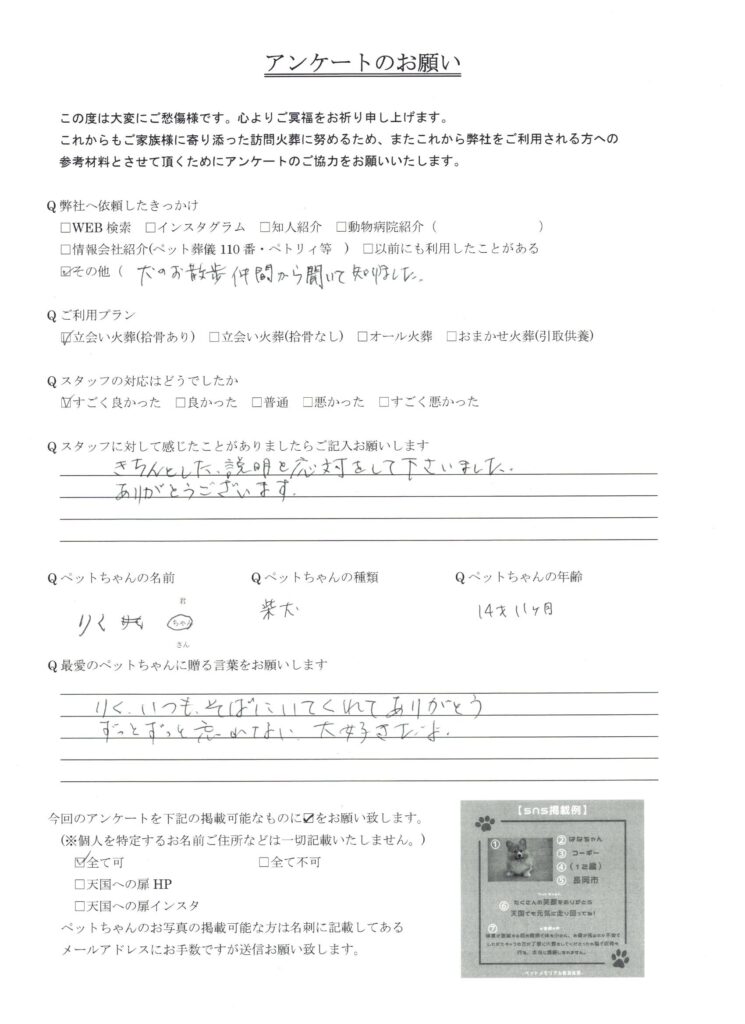 アンケートのお願い
この度は大変にご愁傷様です。心よりご冥福をお祈り申し上げます。
これからもご家族様に寄り添った訪問火葬に努めるため、またこれから弊社をご利用される方への
参考材料とさせて頂くためにアンケートのご協力をお願いいたします。
Q 弊社へ依頼したきっかけ
□WEB 検索 □インスタグラム □知人紹介 □動物病院紹介（ ）
□情報会社紹介(ペット葬儀 110 番・ペトリィ等 ) □以前にも利用したことがある
☑その他（ 犬のお散歩仲間から聞いて知りました。
Q ご利用プラン
☑立会い火葬(拾骨あり) □立会い火葬(拾骨なし) □オール火葬 □おまかせ火葬(引取供養)
Q スタッフの対応はどうでしたか
☑すごく良かった □良かった □普通 □悪かった □すごく悪かった
Q スタッフに対して感じたことがありましたらご記入お願いします
きちんとした、説明と応対をして下さいました。
ありがとうございます。
Q ペットちゃんの名前 Q ペットちゃんの種類 Q ペットちゃんの年齢
君
りく ちゃん 柴犬 14才11ヶ月
さん
Q 最愛のペットちゃんに贈る言葉をお願いします
りく、いつも、そばにいてくれてありがとう
ずっとずっと忘れない、大好きだよ。
今回のアンケートを下記の掲載可能なものに☑をお願い致します。
(※個人を特定するお名前ご住所などは一切記載いたしません。)
☑全て可 □全て不可
□天国への扉 HP
□天国への扉インスタ
ペットちゃんのお写真の掲載可能な方は名刺に記載してある
メールアドレスにお手数ですが送信お願い致します。
【sns掲載例】
① ② はなちゃん
③ コーギー
④ （12歳）
⑤ 長岡市
⑥ たくさんの笑顔をありがとう
天国でも元気に走り回ってね！
⑦